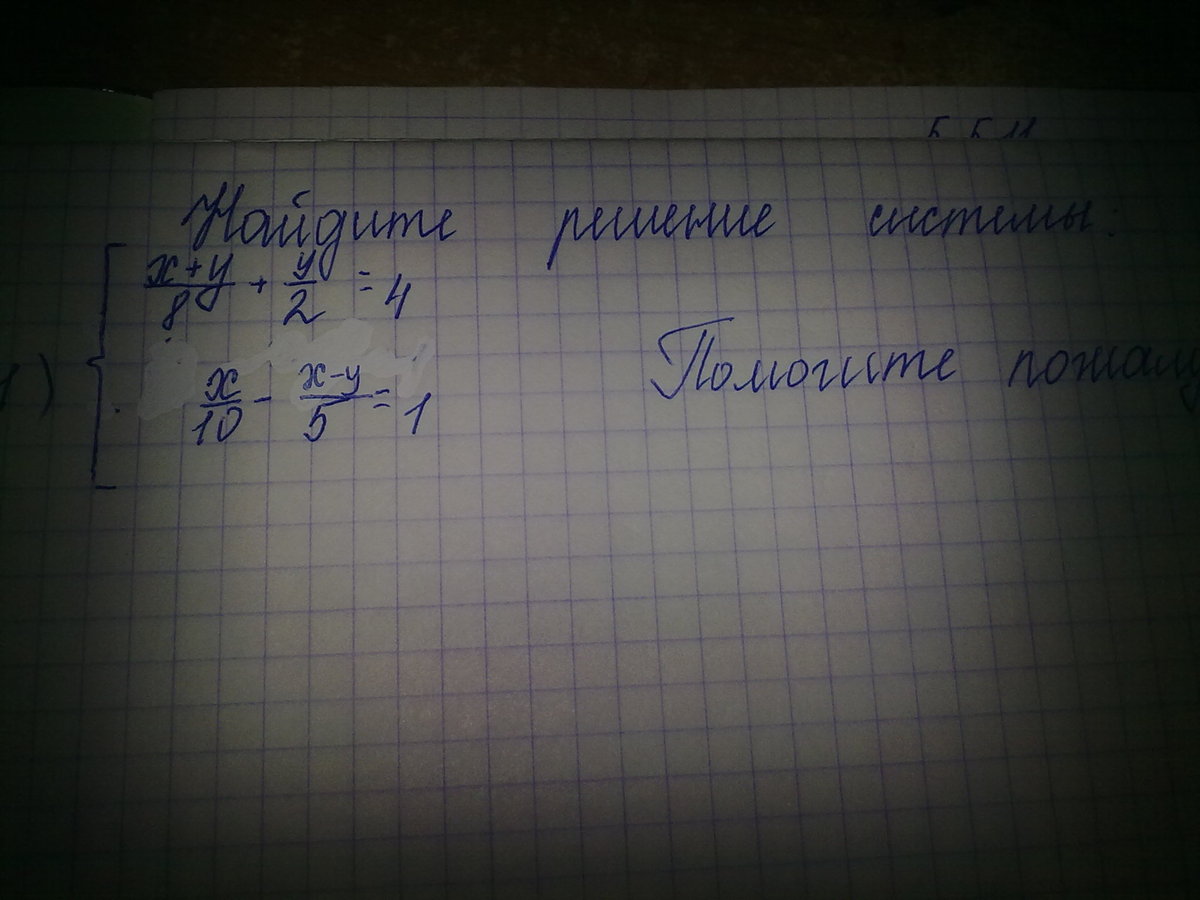 Найдите решение системы:
1) { (x+y)/8 + y/2 = 4
x/10 - (x-y)/5 = 1
Помогите